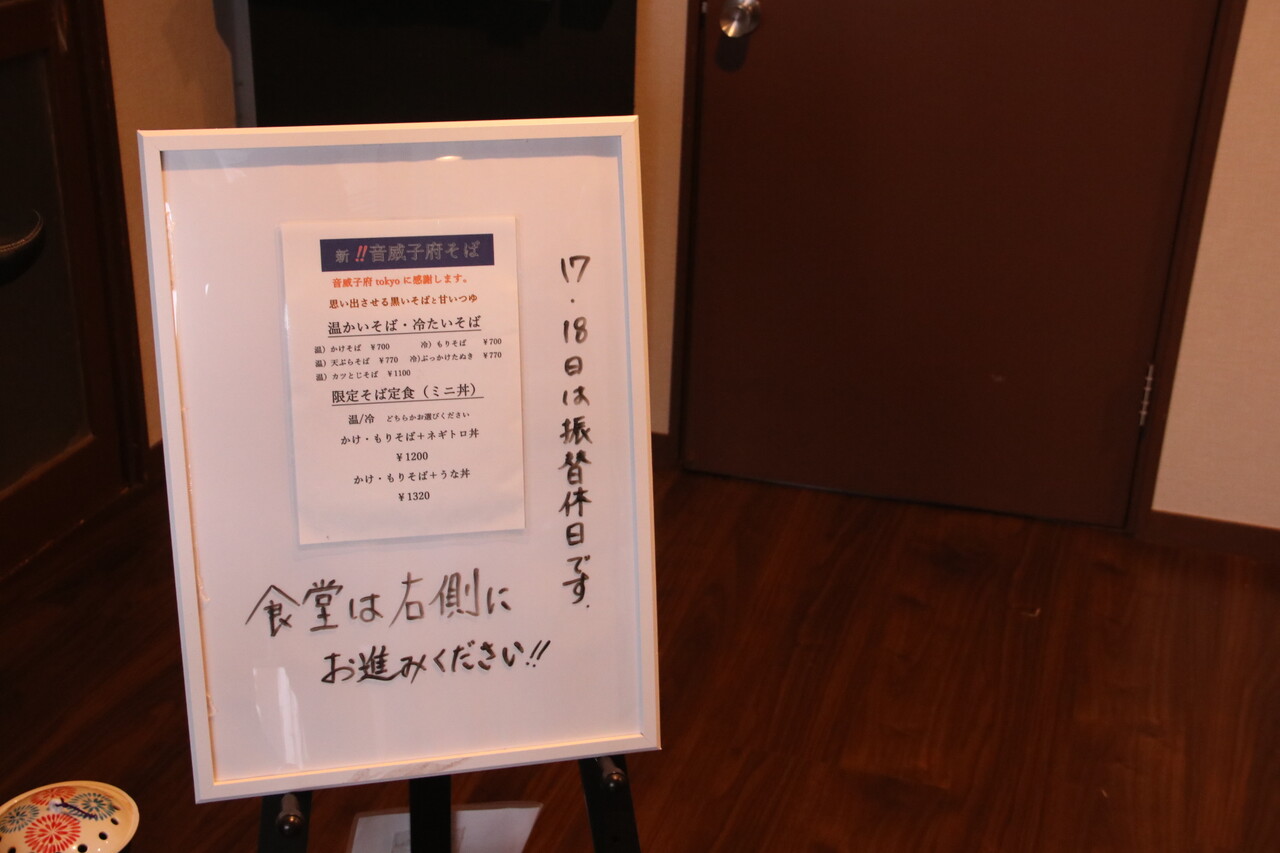 新!!音威子府そば
音威子府 tokyo に感謝します。
思い出させる黒いそばと甘いつゆ
温かいそば・冷たいそば
温）かけそば ￥700 冷）もりそば ￥700
温）天ぷらそば ￥770 冷)ぶっかけたぬき ￥770
温）カツとじそば ￥1100
限定そば定食（ミニ丼）
温/冷 どちらかお選びください
かけ・もりそば＋ネギトロ丼
￥1200
かけ・もりそば＋うな丼
￥1320
17・18日は振替休日です.
食堂は右側に
お進みください!!